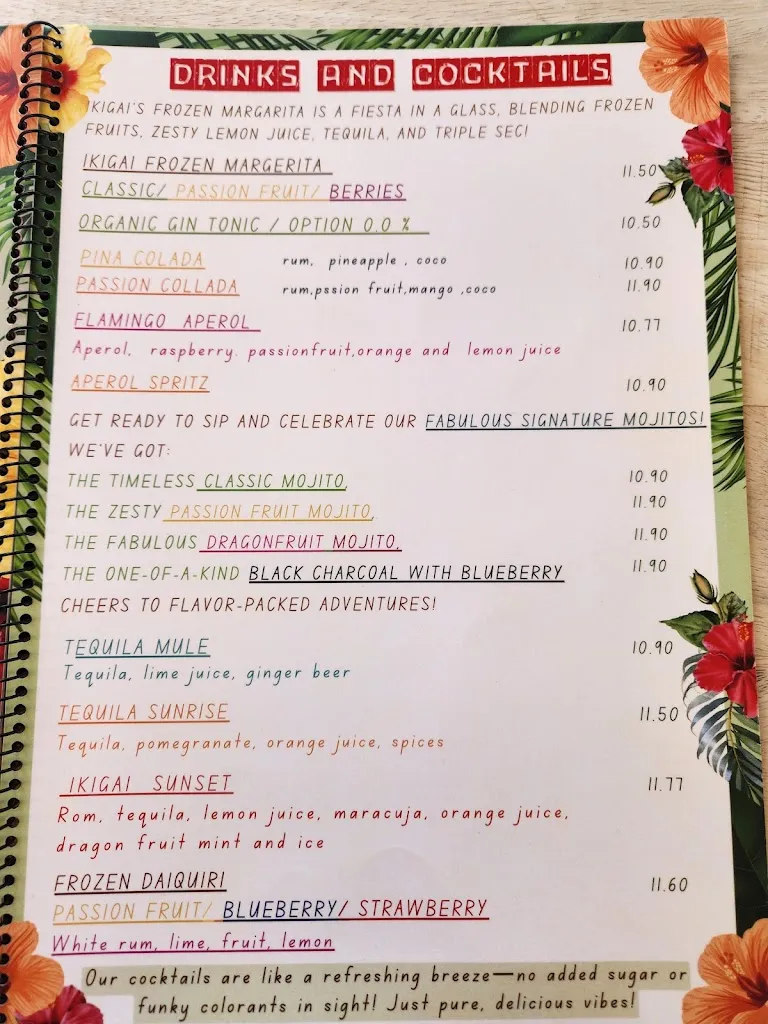 DRINKS AND COCKTAILS
IKIGAI'S FROZEN MARGARITA IS A FIESTA IN A GLASS, BLENDING FROZEN
FRUITS, ZESTY LEMON JUICE, TEQUILA, AND TRIPLE SEC!
IKIGAI FROZEN MARGERITA 11.50
CLASSIC/ PASSION FRUIT/ BERRIES
ORGANIC GIN TONIC / OPTION 0.0 % 10.50
PINA COLADA rum, pineapple , coco 10.90
PASSION COLLADA rum,pssion fruit,mango ,coco 11.90
FLAMINGO APEROL 10.77
Aperol, raspberry. passionfruit,orange and lemon juice
APEROL SPRITZ 10.90
GET READY TO SIP AND CELEBRATE OUR FABULOUS SIGNATURE MOJITOS!
WE'VE GOT:
THE TIMELESS CLASSIC MOJITO, 10.90
THE ZESTY PASSION FRUIT MOJITO, 11.90
THE FABULOUS DRAGONFRUIT MOJITO, 11.90
THE ONE-OF-A-KIND BLACK CHARCOAL WITH BLUEBERRY 11.90
CHEERS TO FLAVOR-PACKED ADVENTURES!
TEQUILA MULE 10.90
Tequila, lime juice, ginger beer
TEQUILA SUNRISE 11.50
Tequila, pomegranate, orange juice, spices
IKIGAI SUNSET 11.77
Rom, tequila, lemon juice, maracuja, orange juice,
dragon fruit mint and ice
FROZEN DAIQUIRI 11.60
PASSION FRUIT/ BLUEBERRY/ STRAWBERRY
White rum, lime, fruit, lemon
Our cocktails are like a refreshing breeze—no added sugar or
funky colorants in sight! Just pure, delicious vibes!